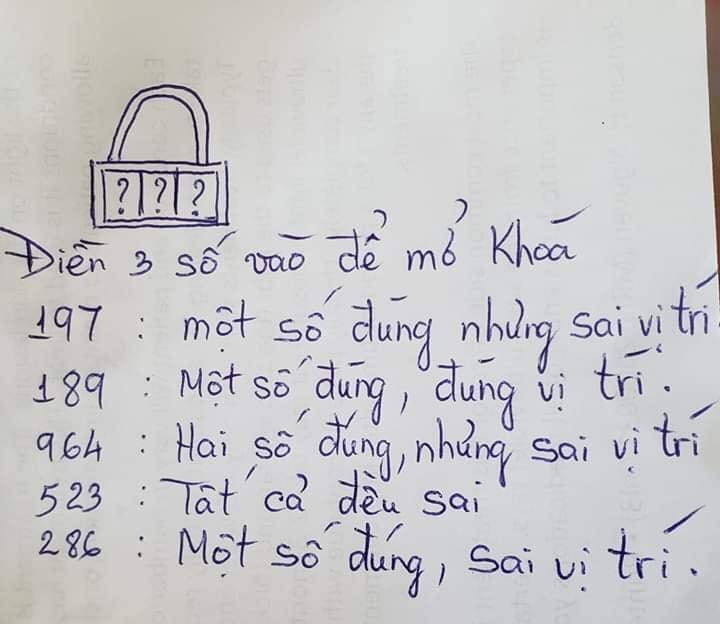 ? ? ?
Điền 3 số vào để mở Khoá
197 : một số đúng nhưng sai vị trí.
189 : Một số đúng, đúng vị trí.
964 : Hai số đúng, nhưng sai vị trí
523 : Tất cả đều sai
286 : Một số đúng, sai vị trí.